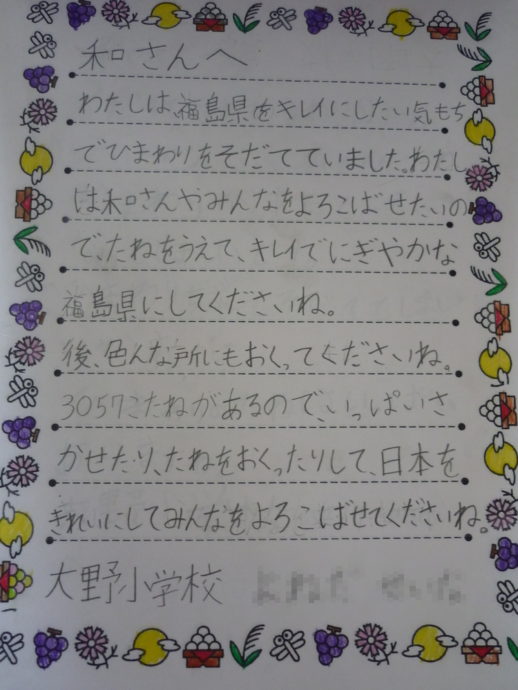 和さんへ
わたしは、福島県をキレイにしたい気もち
でひまわりをそだてていました。わたし
は和さんやみんなをよろこばせたいの
で、たねをうえて、キレイでにぎやかな
福島県にしてくださいね。
後、色んな所にもおくってくださいね。
3057こたねがあるので、いっぱいさ
かせたり、たねをおくったりして、日本を
きれいにしてみんなをよろこばせてくださいね。
大野小学校